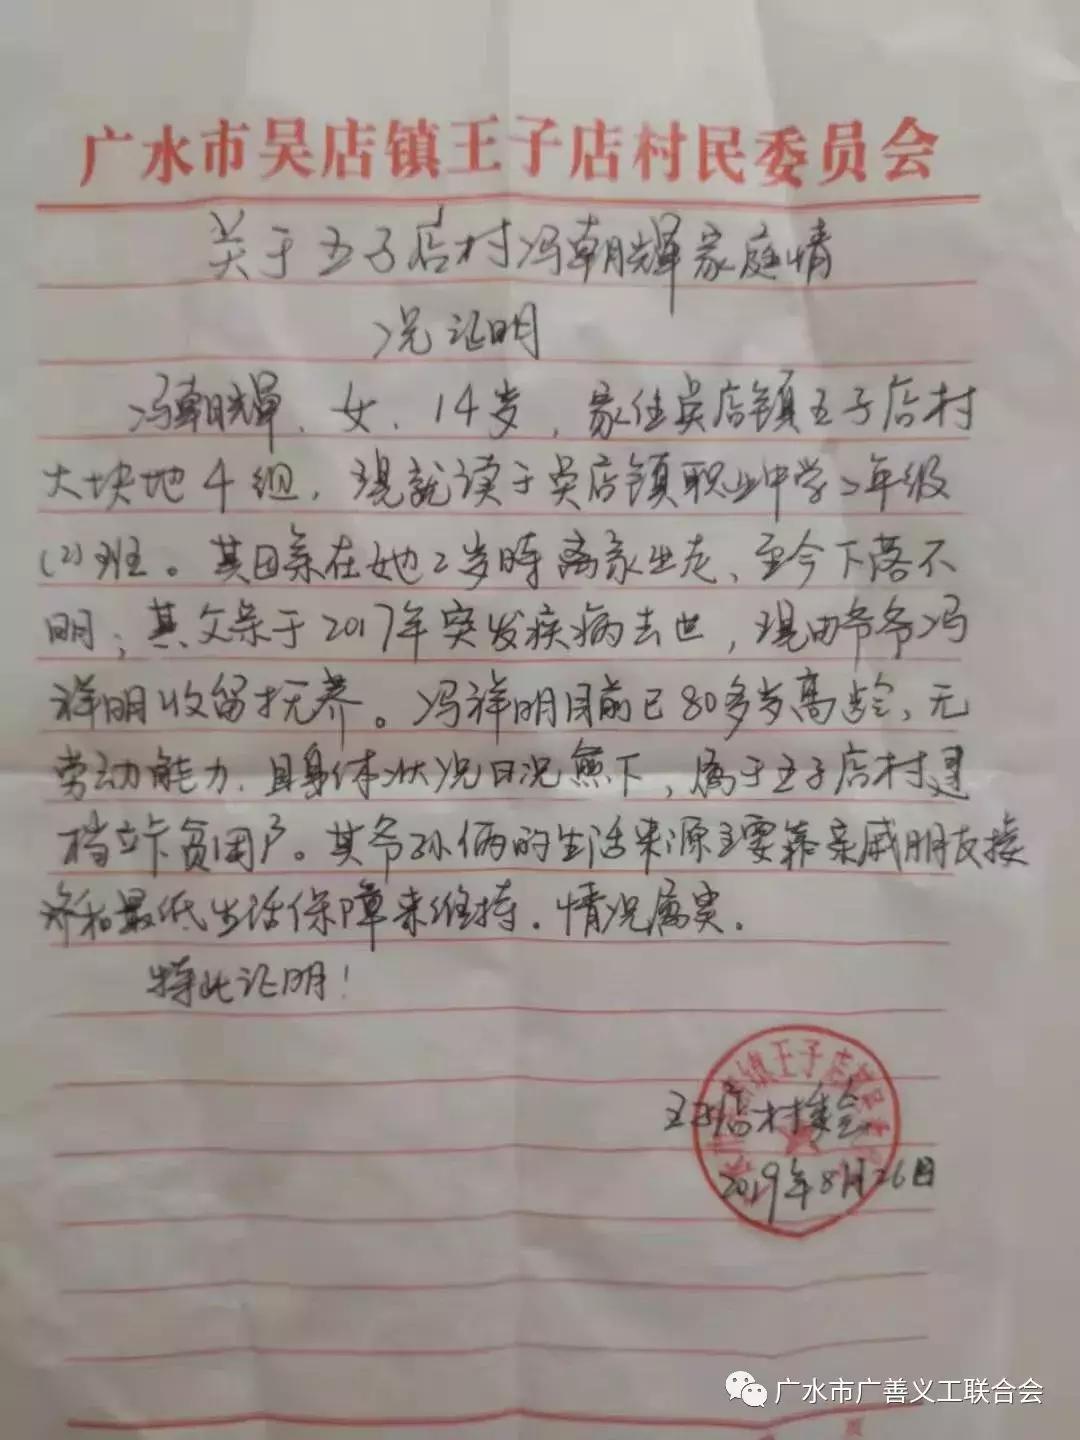 广水市吴店镇王子店村民委员会
关于王子店村冯朝辉家庭情
况证明
冯朝辉、女、14岁,家住吴店镇王子店村
大块地4组,现就读于吴店镇职业中学2年级
(2)班。其母亲在她2岁时离家出走、至今下落不
明;其父亲于2017年突发疾病去世,现由爷爷冯
祥明收留抚养。冯祥明目前已80多岁高龄、无
劳动能力、且身体状况日况愈下,属于王子店村建
档立卡贫困户。其爷孙俩的生活来源主要靠亲戚朋友接
济和最低生活保障来维持。情况属实。
特此证明!
王子店村委会
2019年8月26日
镇王子店
广水市广善义工联合会